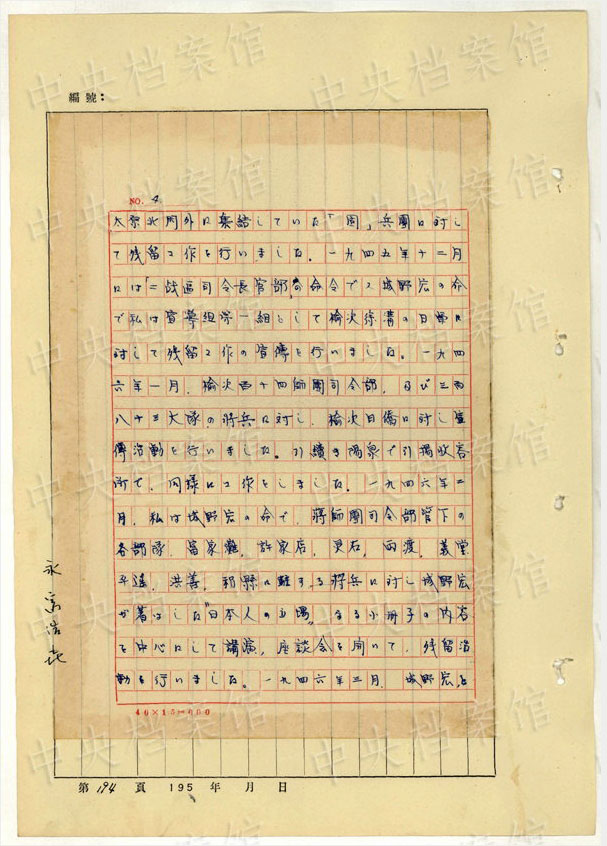 編號：
NO. 4
太原北門外に集結していた「固」兵團に対し
て残留工作を行いました。一九四五年十二月
には「二战區司令長官部」の命令で城野宏の命
で私は宣導組第一組として榆次徐溝の日軍に
対して残留工作の宣傳を行いました。一九四
六年一月、榆次百十四師團司令部、及び三百
八十三大隊の将兵に対し、榆次日僑に対し宣
傳活動を行いました。引續き陽泉で引揚收容
所で、同様に工作をしました。一九四六年二
月、私は城野宏の命で、蔣師團司令部管下の
各部隊、富家灘、許家店、灵石、両渡、義堂
平遥、洪善、祁縣に駐する将兵に対し城野宏
が著はした"日本人の立場"なる小冊子の内容
を中心にして講演、座談会を開いて、残留活
動を行いました。一九四六年三月、城野宏と
40×15=600
永富浩喜
第 194 頁 195 年 月 日
中央档案馆